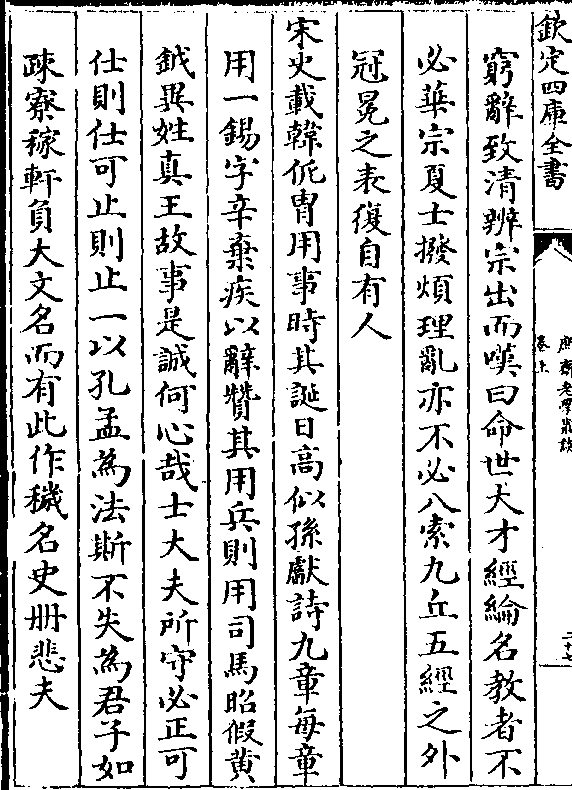 欽定四庫全書
庶齋老學叢談
卷上
二十七
窮辭致清辨宗出而嘆曰命世大才經綸名教者不
必華宗夏士撥煩理亂亦不必八索九丘五經之外
冠冕之表復自有人
宋史載韓侂胄用事時其誕日高似孫獻詩九章每章
用一錫字辛棄疾以辭贊其用兵則用司馬昭假黃
鉞異姓真王故事是誠何心哉士大夫所守必正可
仕則仕可止則止一以孔孟為法斯不失為君子如
疎寮稼軒負大文名而有此作穢名史冊悲夫